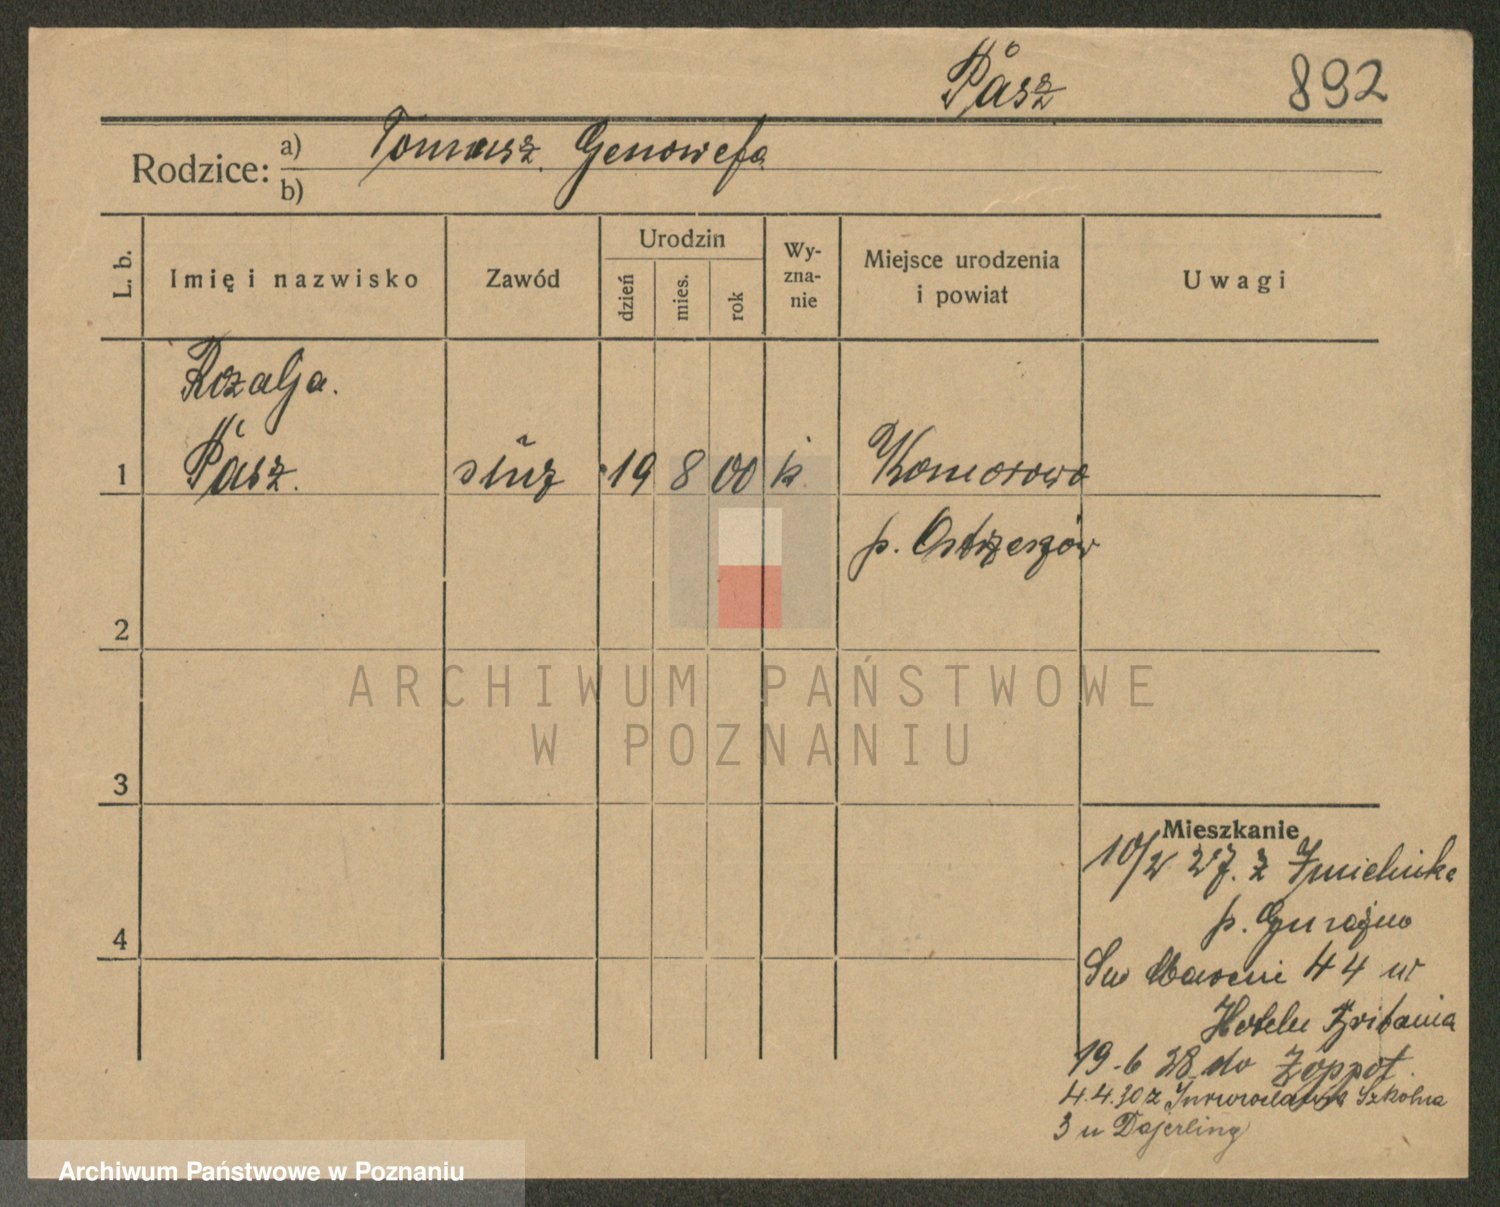 Pasz 892
Rodzice: a) Tomasz Genowefa
b)
L. b. Imię i nazwisko Zawód Urodzin dzień mies. rok Wy-zna-nie Miejsce urodzenia i powiat Uwagi
Rozalja.
1 Pasz. służ 19 8 00 k. Komorowo
p. Ostrzeszów
2
ARCHIWUM PAŃSTWOWE
W POZNANIU
3
Mieszkanie
10/2 27. z
4 p.
Św Marcin 44 w
Hotelu Britania
19-6 28 do Zoppot
4.4.30 z Inowrocławia Szkolna
3 u Dajerling
Archiwum Państwowe w Poznaniu